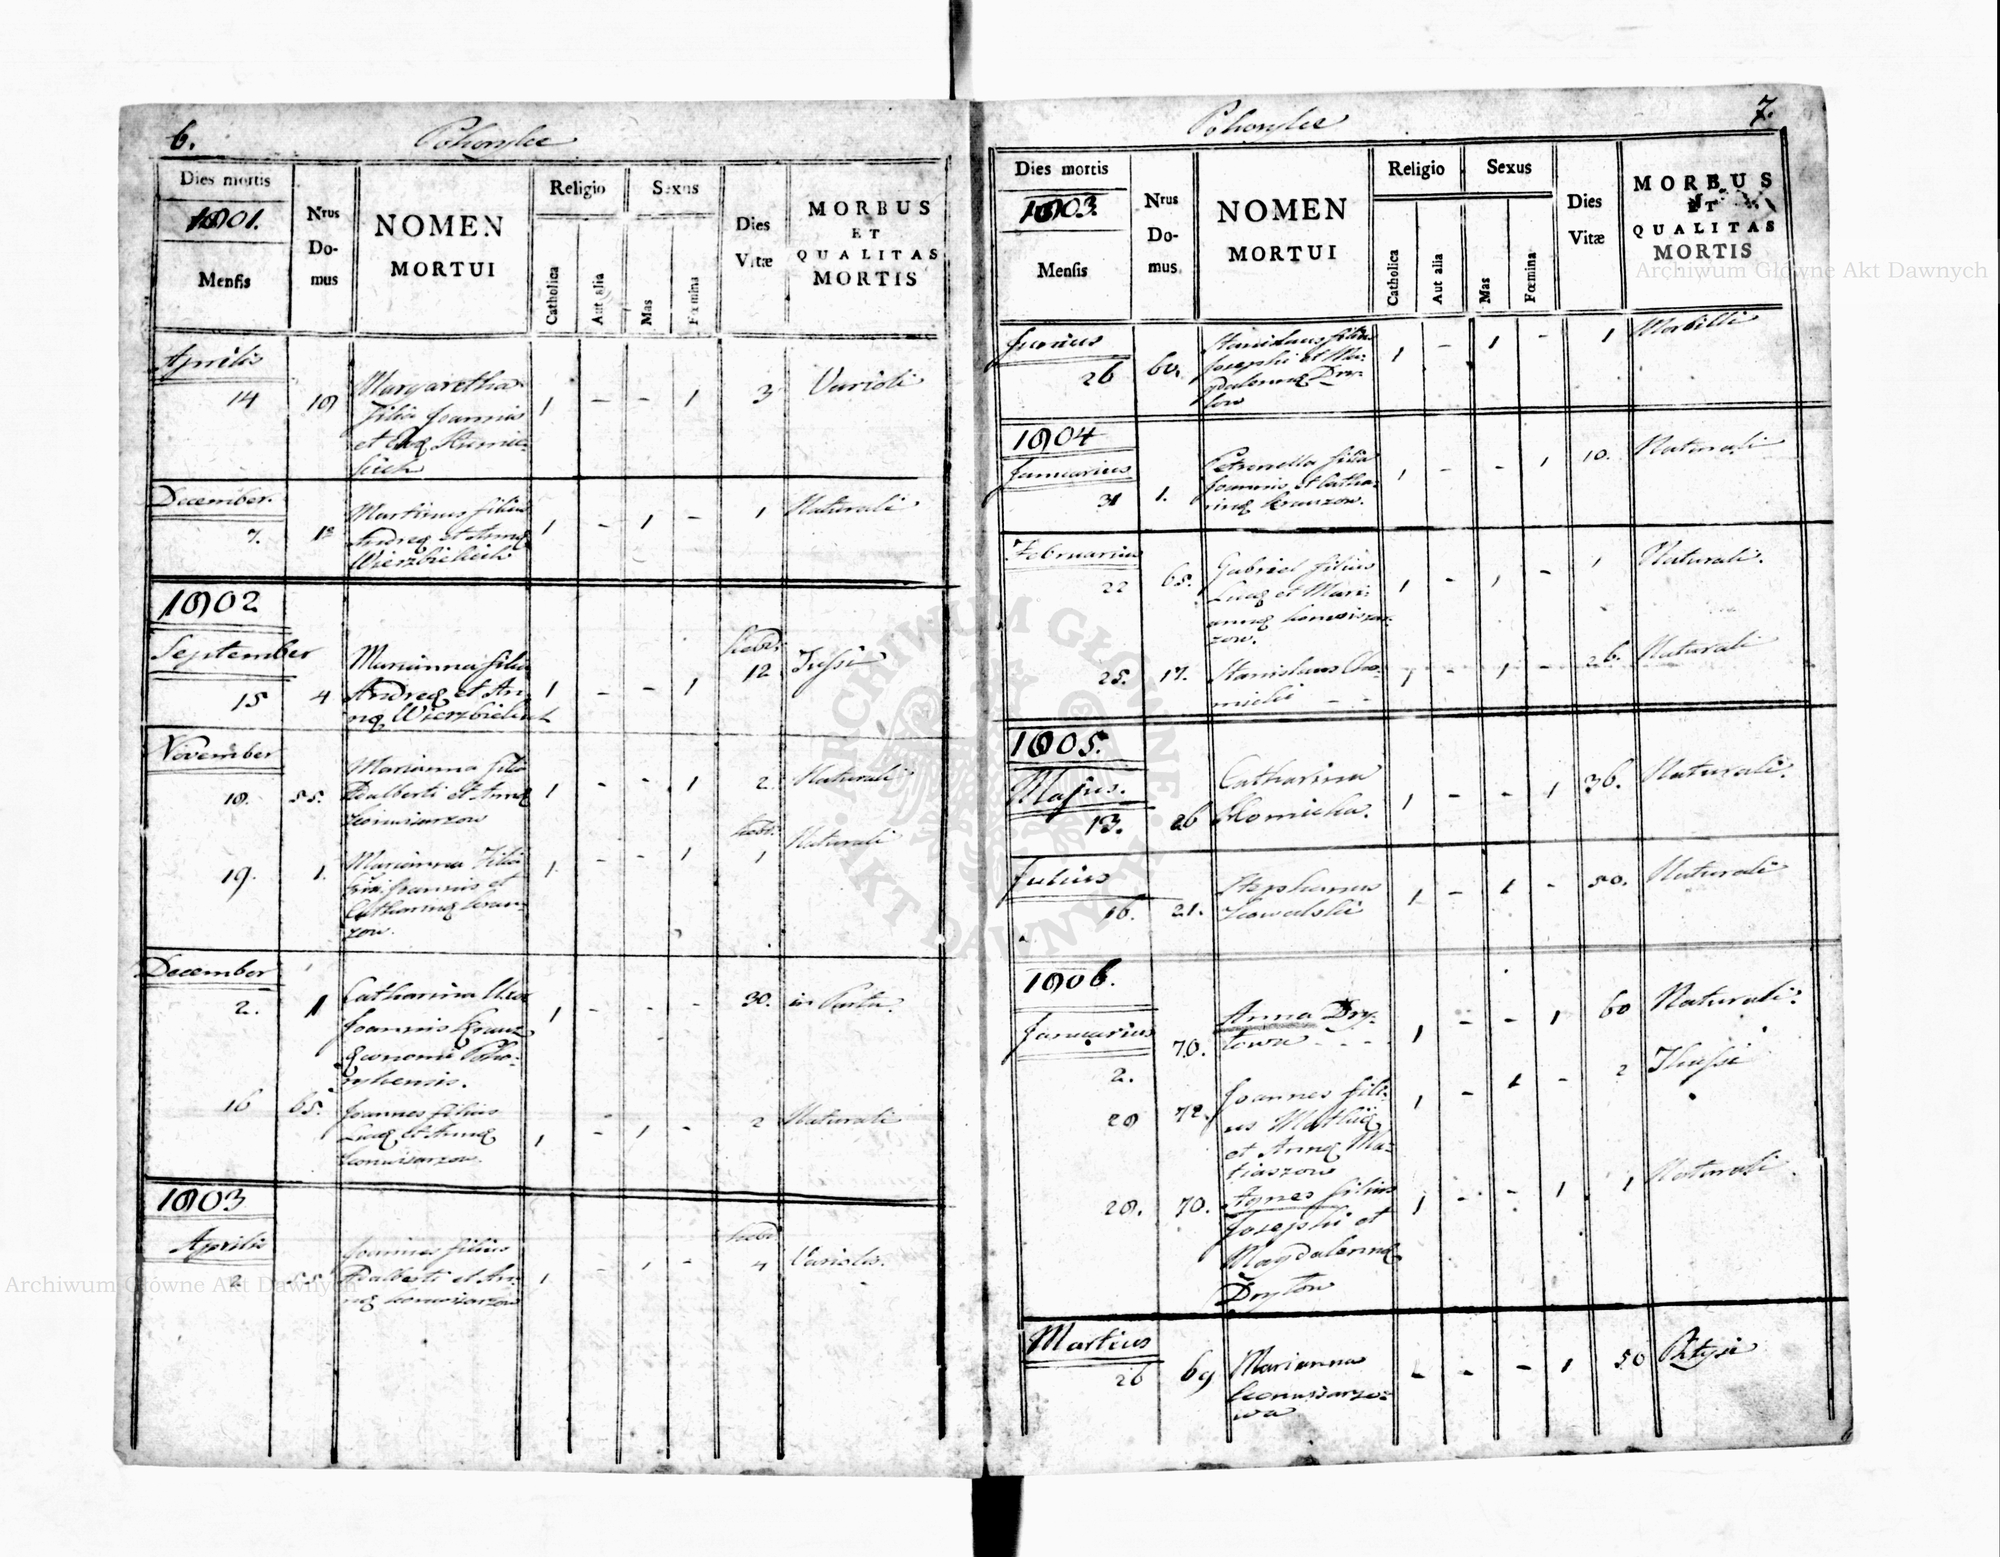 6.
Pohorylce
Dies mortis
1801.
Mensis
Nrus
Do-
mus
NOMEN
MORTUI
Religio
Catholica
Aut alia
Sexus
Mas
Fœmina
Dies
Vitæ
MORBUS
ET
QUALITAS
MORTIS
Aprilis
14 18 Margaretha 1 - - 1 3 Varioli
filia Joannis
et Evæ
December
7. 12 Martinus filius 1 - 1 - 1 Naturali
Andreæ et Annæ
Wierzbickich
1802
September
15 4 Marianna filia 1 - - 1 12 Tussi
Andreæ et An-
næ Wierzbickich
November
18. 55. Marianna filia 1 - - 1 2. Naturali
Adalberti et Annæ
19. 1. Marianna Filia 1 - - 1 1 Naturali
Joannis et
Catharinæ Kran-
zow.
December
2. 1 Catharina Uxor 1 - - - 30. in Partu.
Joannis Kranz
Œconomi Poho-
rylcensis.
16 65. Joannes filius 1 - 1 - 2 Naturali
Lucæ et Annæ
1803
Aprilis
2 55. Joannes filius 1 - 1 - 4 Variolis.
Adalberti et An-
næ
7.
Pohorylce
Dies mortis
1803.
Mensis
Nrus
Do-
mus
NOMEN
MORTUI
Religio
Catholica
Aut alia
Sexus
Mas
Fœmina
Dies
Vitæ
MORBUS
ET
QUALITAS
MORTIS
Junius
26 60. Stanislaus filius 1 - 1 - 1 Morbilli
Josephi et Ma-
gdalenæ Dry-
low
1804
Januarius
31 1. Petronella filia 1 - - 1 10. Naturali
Joannis et Catha-
rinæ Kranzow.
Februarius
22 65. Gabriel filius 1 - 1 - 1 Naturali.
Lucæ et Mari-
annæ
zow.
25. 17. Stanislaus 1 - 1 - 26. Naturali
1805.
Majus.
13. 26 Catharina 1 - - 1 36. Naturali.
Julius
16. 21. Stephanus 1 - 1 - 50. Naturali
Kowalski
1806.
Januarius
2. 70. Anna Dry- 1 - - 1 60 Naturali.
towa
28 72. Joannes fili- 1 - 1 - 2 Thussi
us Mathiæ
et Annæ Ma-
tiaszow
28. 70. Agnes filius 1 - - 1 1 Naturali.
Josephi et
Magdalennæ
Dryton
Martius
26 69 Marianna 1 - - 1 50 Ptysi
wa
Archiwum Główne Akt Dawnych
Archiwum Główne Akt Dawnych
ARCHIWUM GŁÓWNE AKT DAWNYCH